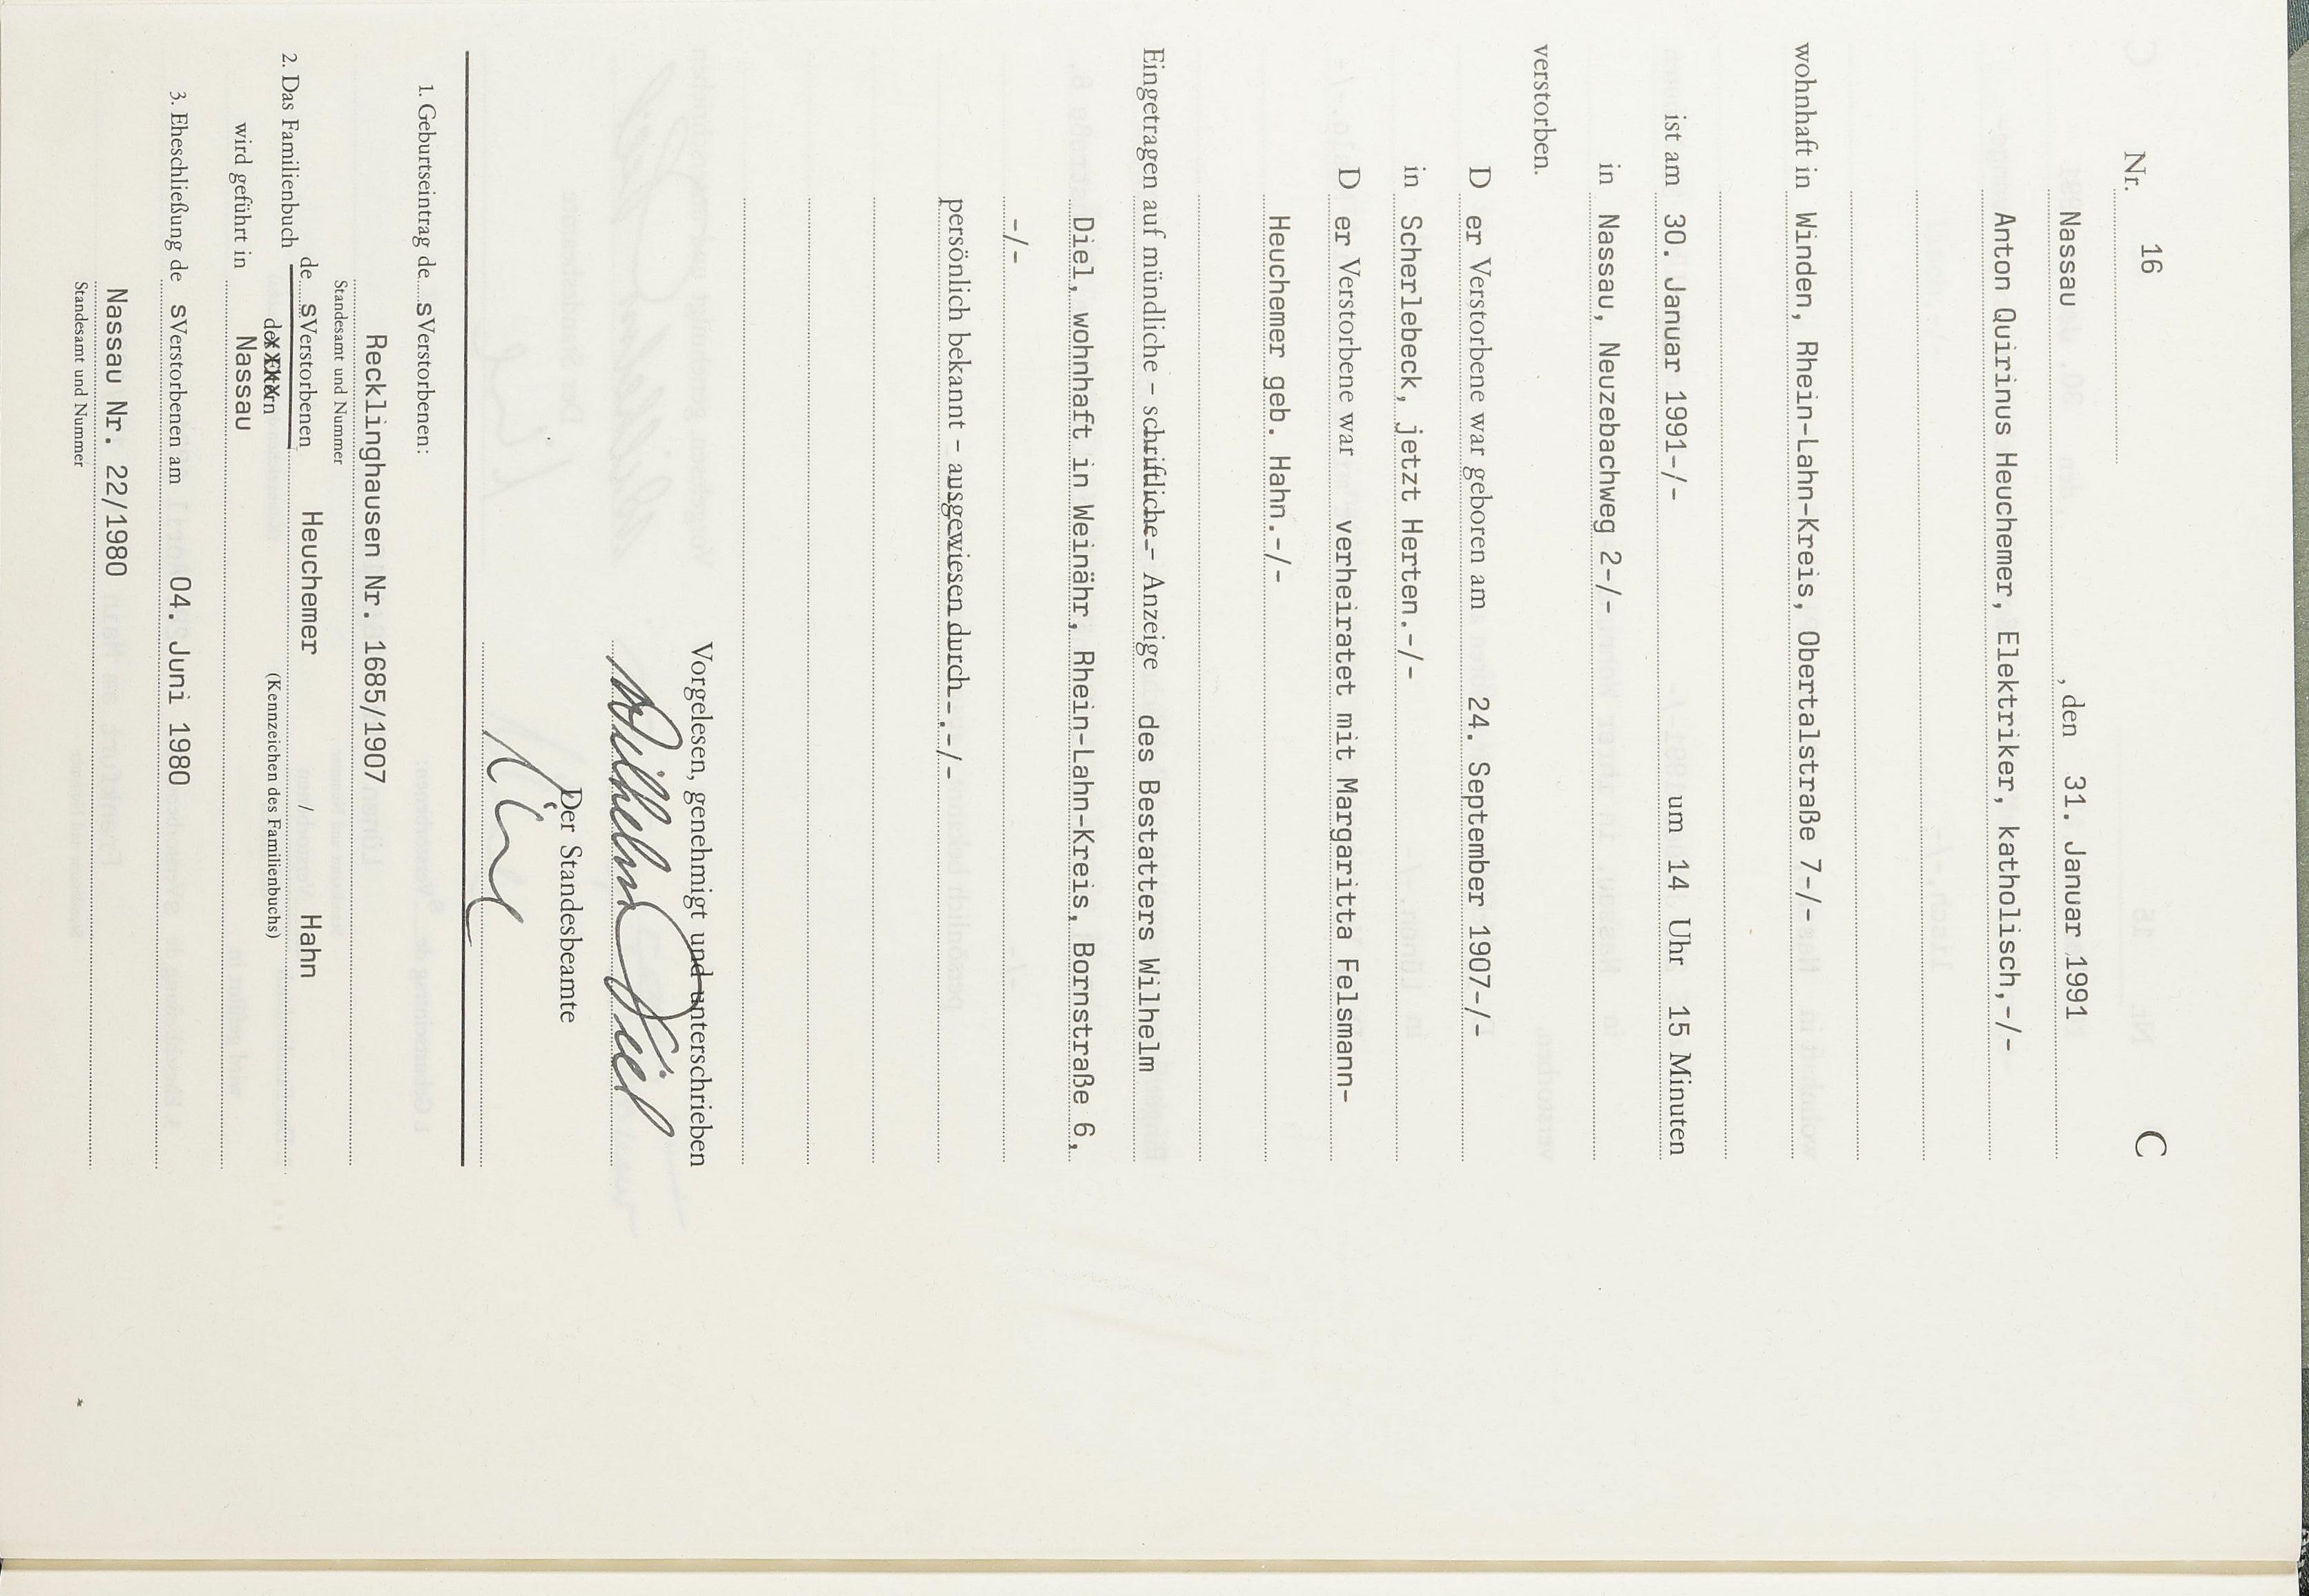 Nr. 16 C
Nassau , den 31. Januar 1991
Anton Quirinus Heuchemer, Elektriker, katholisch,-/-
wohnhaft in Winden, Rhein-Lahn-Kreis, Obertalstraße 7-/-
ist am 30. Januar 1991-/- um 14 Uhr 15 Minuten
in Nassau, Neuzebachweg 2-/-
verstorben.
D er Verstorbene war geboren am 24. September 1907-/-
in Scherlebeck, jetzt Herten.-/-
D er Verstorbene war verheiratet mit Margaritta Felsmann-
Heuchemer geb. Hahn.-/-
Eingetragen auf mündliche - schriftliche - Anzeige des Bestatters Wilhelm
Diel, wohnhaft in Weinähr, Rhein-Lahn-Kreis, Bornstraße 6,
-/-
persönlich bekannt - ausgewiesen durch -.-/-
Vorgelesen, genehmigt und unterschrieben
Wilhelm Diel
Der Standesbeamte
1. Geburtseintrag de s Verstorbenen:
Recklinghausen Nr. 1685/1907
Standesamt und Nummer
2. Das Familienbuch de s Verstorbenen Heuchemer / Hahn
der Eltern (Kennzeichen des Familienbuchs)
wird geführt in Nassau
3. Eheschließung de s Verstorbenen am 04. Juni 1980
Nassau Nr. 22/1980
Standesamt und Nummer